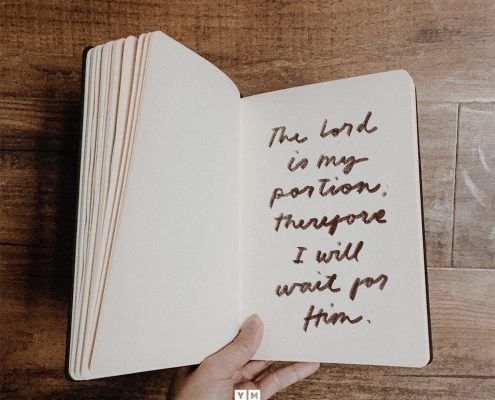 The Lord
is my
portion;
therefore
I will
wait for
Him.
Y|M